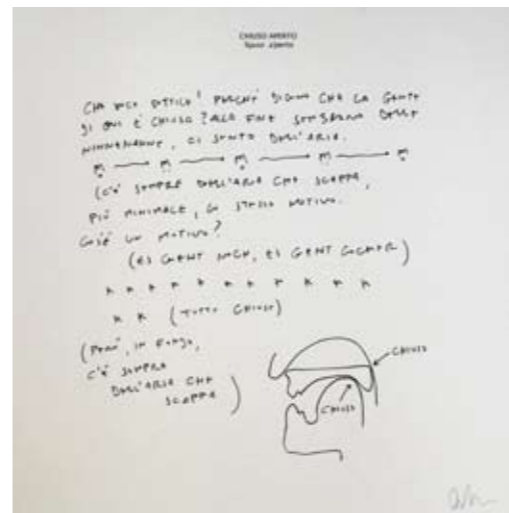 CHIUSO APERTO
CHE DICI? PERCHÉ DICONO CHE LA GENTE
DI QUI È CHIUSA? ALLA FINE SEMBRANO DELLE
NINNENANNE, CI SENTO DELL'ARIA.
m → m → m → m → m
(C'È SEMPRE DELL'ARIA CHE SCAPPA,
PIÙ MINIMALE, LO STESSO MOTIVO.
COS'È UN MOTIVO?
(ES GEHT NOCH, ES GEHT
K K K K K K K K K K
K K (TUTTO CHIUSO)
(PERÒ, IN FONDO,
C'È SEMPRE
DELL'ARIA CHE
SCAPPA)
CHIUSO
CHIUSO